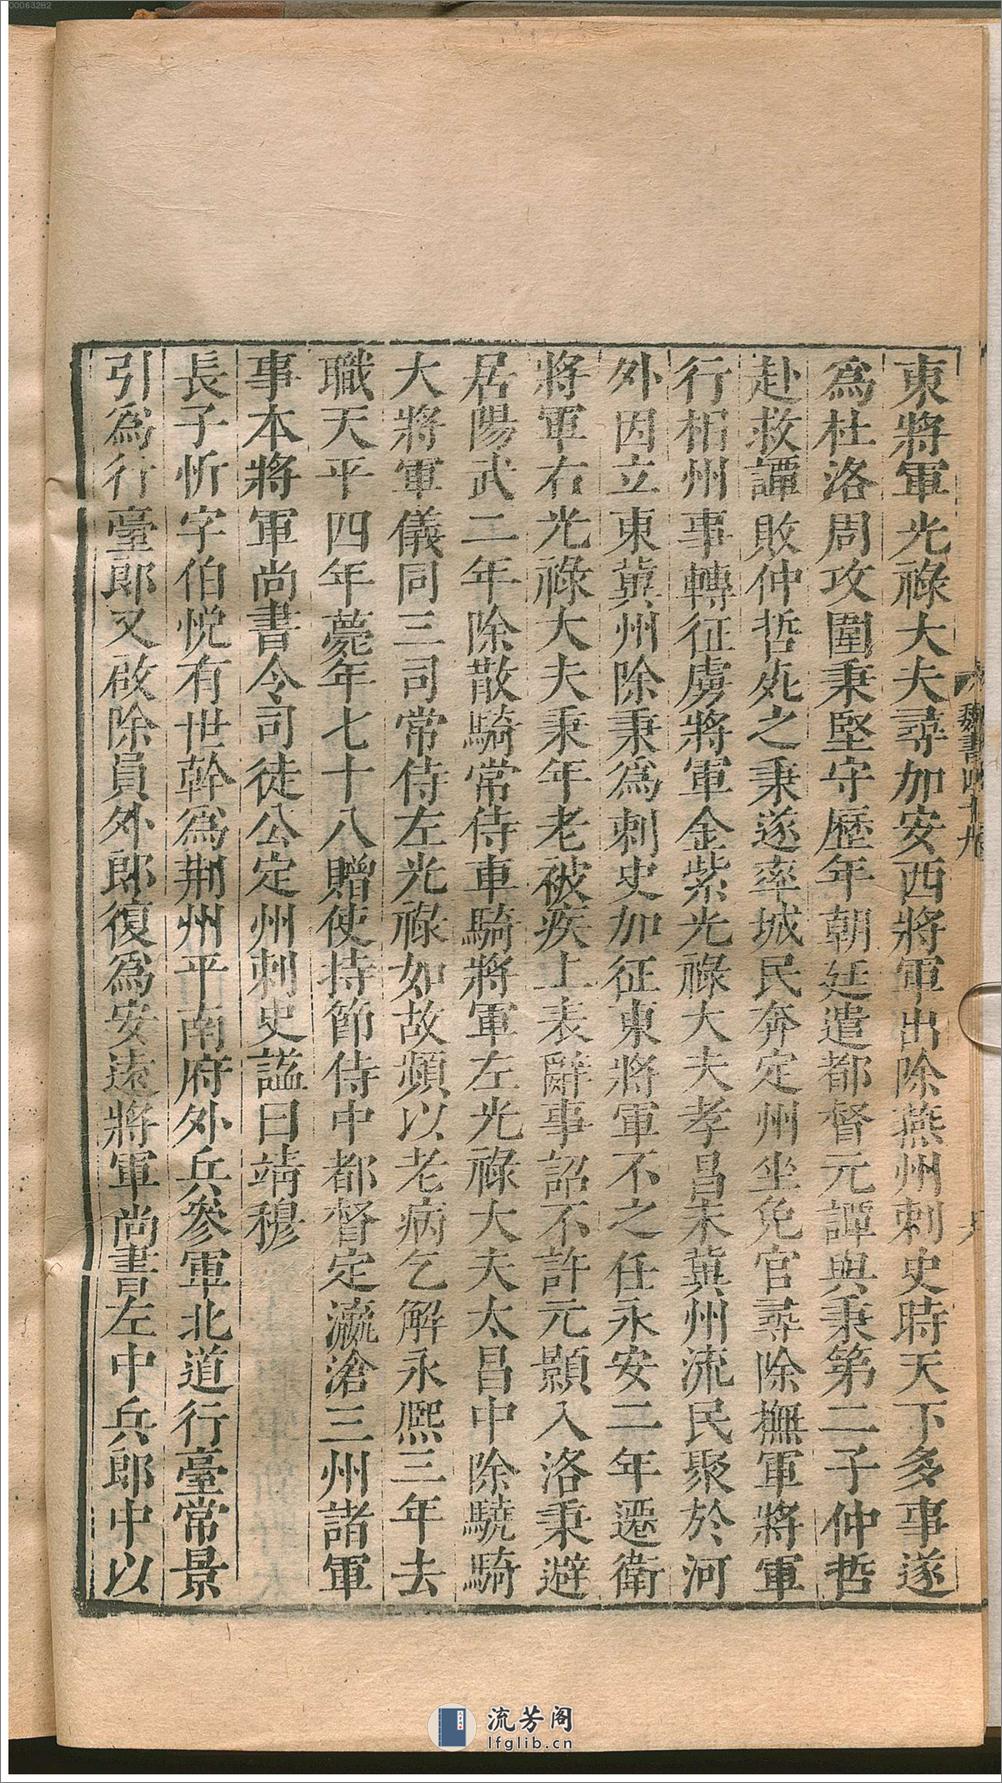 東將軍光祿大夫尋加安西將軍出除燕州刺史時天下多事遂
爲杜洛周攻圍秉堅守歷年朝廷遣都督元譚與秉第二子仲哲
赴救譚敗仲哲死之秉遂率城民奔定州坐免官尋除撫軍將軍
行相州事轉征虜將軍金紫光祿大夫孝昌末冀州流民聚於河
外因立東冀州除秉爲刺史加征東將軍不之任永安二年遷衛
將軍右光祿大夫秉年老被疾上表辭事詔不許元顥入洛秉避
居陽武二年除散騎常侍車騎將軍左光祿大夫太昌中除驍騎
大將軍儀同三司常侍左光祿如故頻以老病乞解永熙三年去
職天平四年薨年七十八贈使持節侍中都督定瀛滄三州諸軍
事本將軍尚書令司徒公定州刺史謚曰靖穆
長子忻字伯悅有世幹爲荆州平南府外兵參軍北道行臺常景
引爲行臺郎又啟除員外郎復爲安遠將軍尚書左中兵郎中以
魏書
流芳阁
lfglib.cn